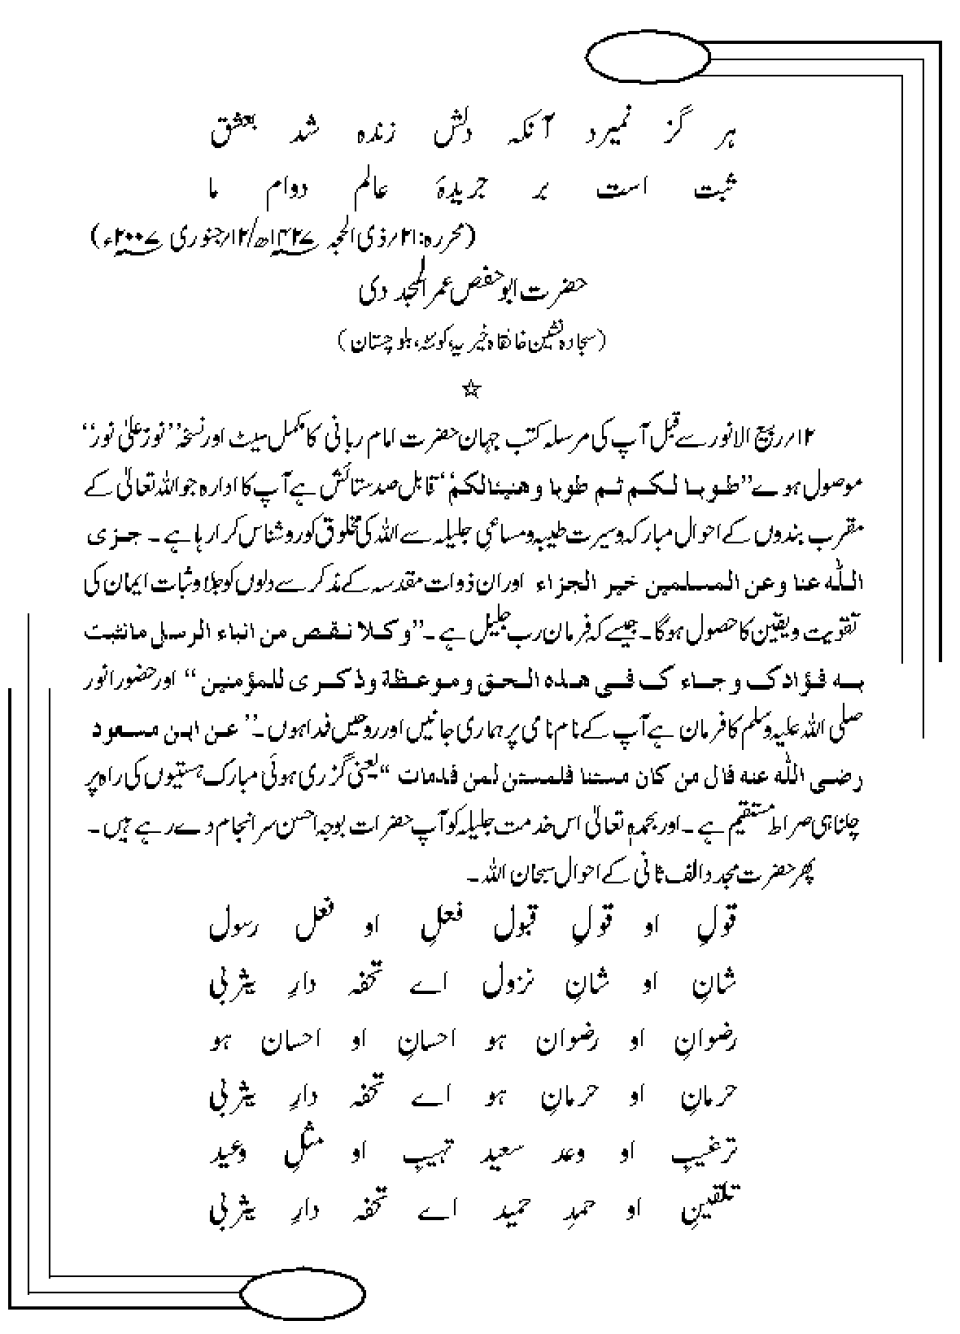 ہر گز نمیرد آنکہ دلش زندہ شد بعشق
ثبت است بر جریدۂ عالم دوام ما
(محررہ:۲۱؍ذی الحجہ ۱۴۲۷ھ/۱۲؍جنوری ۲۰۰۷ء)
حضرت ابو حفص عمر المجددی
(سجادہ نشین خانقاہ خیریہ، کوئٹہ، بلوچستان)
☆
۱۲؍ربیع الانور سے قبل آپ کی مرسلہ کتب جہان حضرت امام ربانی کا مکمل سیٹ اور نسخہ ’’نورٌ علیٰ نور‘‘
موصول ہوے ’’طوبا لکم ثم طوبا وھنیئالکم‘‘ قابل صد ستائش ہے آپ کا ادارہ جو اللہ تعالیٰ کے
مقرب بندوں کے احوال مبارکہ و سیرت طیبہ و مساعیِ جلیلہ سے اللہ کی مخلوق کو روشناس کرا رہا ہے ۔ جزی
اللّٰہ عنا وعن المسلمین خیر الجزاء اور ان ذوات مقدسہ کے تذکر سے دلوں کو جلا و ثبات ایمان کی
تقویت و یقین کا حصول ہوگا۔ جیسے کہ فرمان رب جلیل ہے ۔’’وکلا نقص من انباء الرسل مانثبت
بہ فؤادک وجاء ک فی ھذہ الحق وموعظة وذکری للمؤمنین‘‘ اور حضور انور
صلی اللہ علیہ وسلم کا فرمان ہے آپ کے نام نامی پر ہماری جانیں اور روحیں فدا ہوں ۔’’عن ابن مسعود
رضی اللّٰہ عنہ قال من کان مستنا فلیستن لمن قدمات‘‘ یعنی گزری ہوئی مبارک ہستیوں کی راہ پر
چلنا ہی صراط مستقیم ہے ۔ اور بحمدہٖ تعالیٰ اس خدمت جلیلہ کو آپ حضرات بوجہ احسن سرانجام دے رہے ہیں ۔
پھر حضرت مجدد الف ثانی کے احوال سبحان اللہ ۔
قولِ او قولِ قبول فعلِ او فعل رسول
شانِ او شانِ نزول اے تحفہ دارِ یثربی
رضوانِ او رضوان ہو احسانِ او احسان ہو
حرمانِ او حرمانِ ہو اے تحفہ دارِ یثربی
ترغیبِ او وعد سعید تہیبِ او مثلِ وعید
تلقینِ او حمدِ حمید اے تحفہ دارِ یثربی